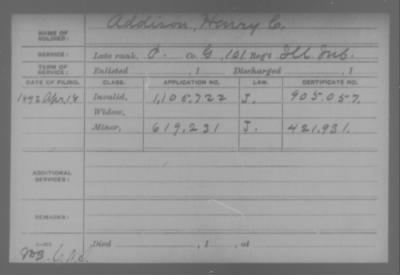 NAME OF SOLDIER: Addison, Henry C.
SERVICE: Late rank, P. Co. G, 101 Reg't Ill. Inf.
TERM OF SERVICE: Enlisted , 1 Discharged , 1
DATE OF FILING. CLASS. APPLICATION NO. LAW. CERTIFICATE NO.
1892 Apr. 18 Invalid, 1,105,722 J. 905,057.
Widow,
Minor, 619,231 J. 421,931.
ADDITIONAL SERVICES:
REMARKS:
Died , 1 , at